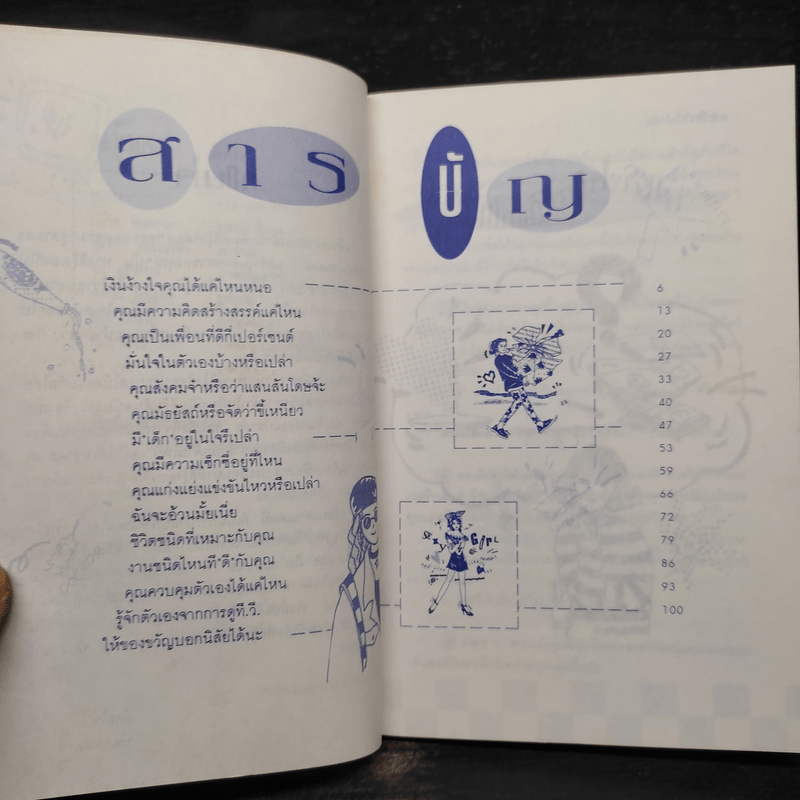 สารบัญ
เงินง้างใจคุณได้แค่ไหนหนอ 6
คุณมีความคิดสร้างสรรค์แค่ไหน 13
คุณเป็นเพื่อนที่ดีกี่เปอร์เซนต์ 20
มั่นใจในตัวเองบ้างหรือเปล่า 27
คุณสังคมจ๋าหรือว่าแสนสันโดษจ้ะ 33
คุณมัธยัสถ์หรือจัดว่าขี้เหนียว 40
มี"เด็ก"อยู่ในใจรึเปล่า 47
คุณมีความเซ็กซี่อยู่ที่ไหน 53
คุณแก่งแย่งแข่งขันไหวหรือเปล่า 59
ฉันจะอ้วนมั้ยเนี่ย 66
ชีวิตชนิดที่เหมาะกับคุณ 72
งานชนิดไหนที่"ดี"กับคุณ 79
คุณควบคุมตัวเองได้แค่ไหน 86
รู้จักตัวเองจากการดูที.วี. 93
ให้ของขวัญบอกนิสัยได้นะ 100
Sexy Girl